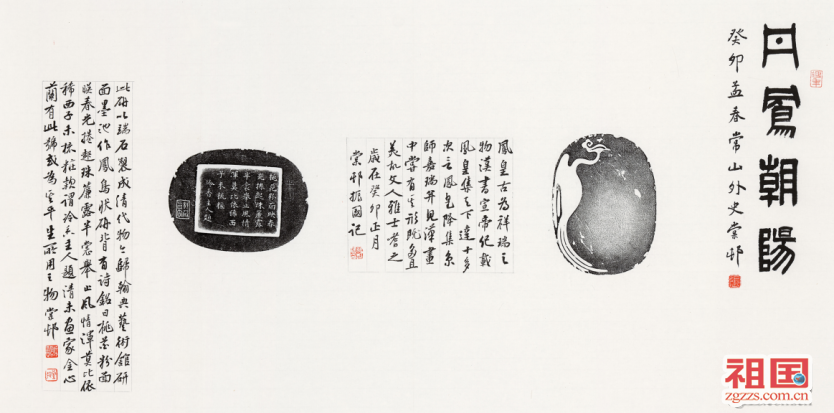 丹鳳朝陽
癸卯孟春常山外史崇邨
鳳皇古為祥瑞之
物漢書宣帝紀載
鳳皇集之下達十多
次言鳳皇降集京
師嘉瑞并見漢畫
中常有其形既多且
美後文人雅士嗜之
歲在癸卯正月
崇邨振國記
此硯以端石製成清代物今歸翰典藝術館研
面墨池作鳳鳥狀硯背有詩銘曰桃花粉面
映春光捲起珠簾露半
裳舉止風情渾莫比依
稀西子未梳粧款謂冷香主人題清末畫家金心
蘭有此號或為其平生所用之物崇邨
祖国
zgzzs.com.cn